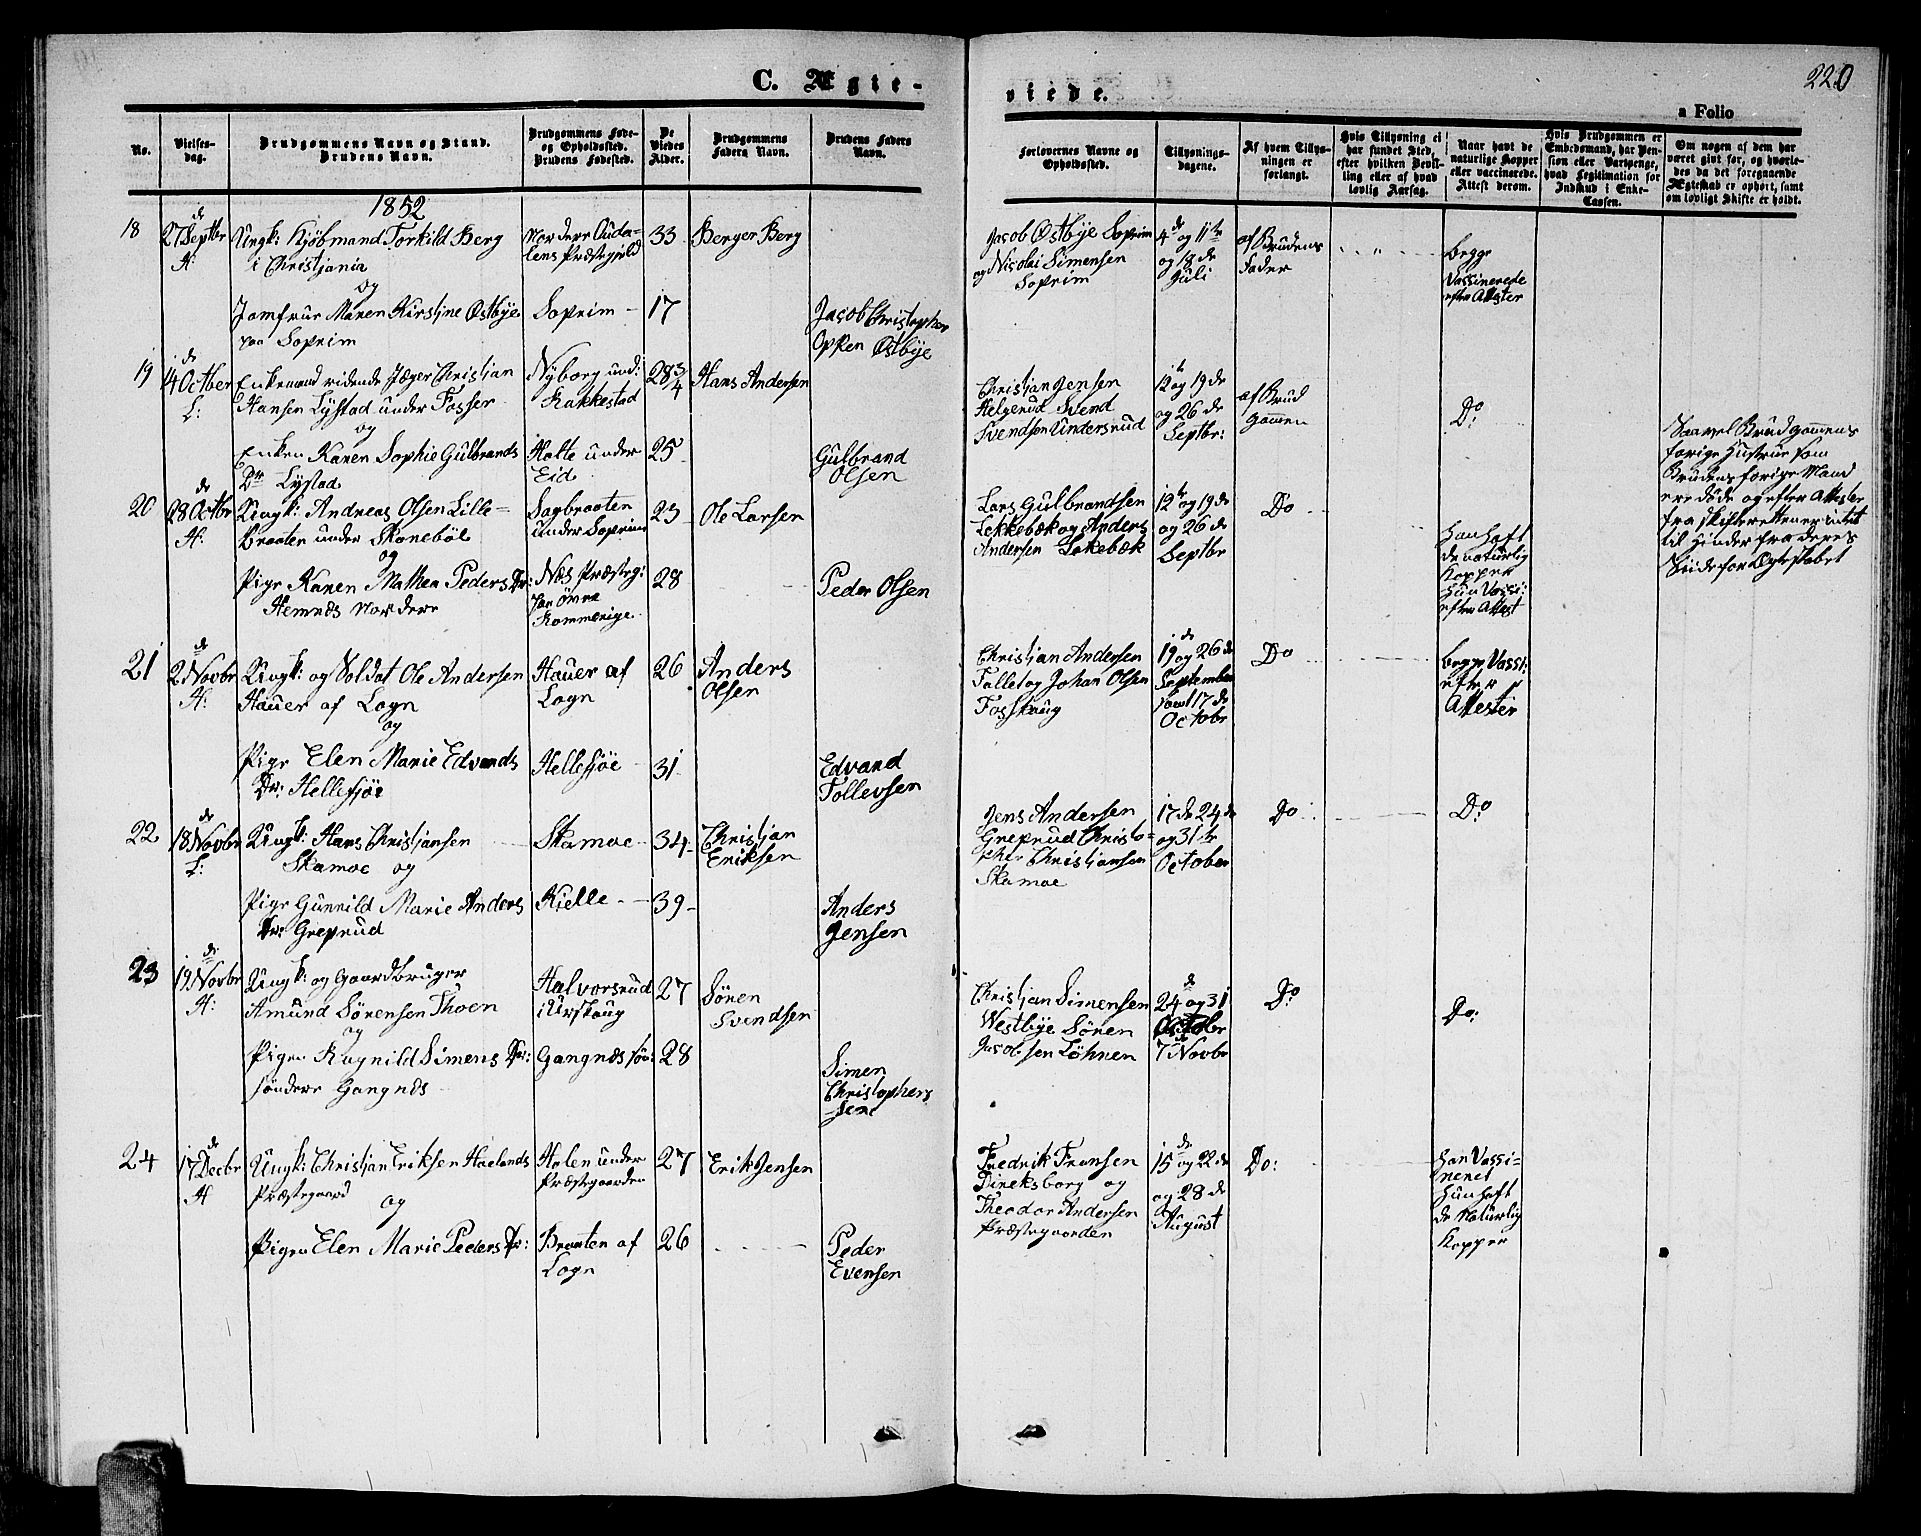 C. Ægte-
viede.
220
a Folio
No.
Vielses-
dag.
Brudgommens Navn og Stand.
Brudens Navn.
Brudgommens Føde-
og Opholdssted.
Brudens Fødested.
De
Viedes
Alder.
Brudgommens
Faders Navn.
Brudens Faders
Navn.
Forlovernes Navne og
Opholdssted.
Tillysnings-
dagene.
Af hvem Tillys-
ningen er
forlangt.
Hvis Tillysning ei
har fundet Sted,
efter hvilken Bevil-
ling eller af hvad
lovlig Aarsag.
Naar havt de
naturlige Kopper
eller vaccinerede.
Attest derom.
Hvis Brudgommen er
Embedsmand, har Pen-
sion eller Vartpenge,
hvad Legitimation for
Indskud i Enke-
Cassen.
Om nogen af dem har
været givt for, og hvorle-
des da det foregaaende
Ægteskab er ophørt, samt
om lovligt Skifte er holdt.
1852
18
27 de Septbr
H:
Ungk: Kjøbmand Torkild Berg
i Christjania
og
Jomfrue Maren Kirstine Østbye
paa Soprim
Nordere
lens Præstegjeld
Soprim
33
17
Berger Berg
Jacob Christopher
Opken Østbye
Jacob Østbye Soprim
og Nicolai Simensen
Soprim
4de og 11te
og 18de
Juli
af Brudens
Fader
begge
Vassinerede
efter Attester
19
14de Octber
L:
Enkemand ridende Jæger Christian
Hansen Lystad under Fosser
og
Enken Karen Sophie Gulbrands
Dtr Lystad
Nyborg und:
Rakkestad
Holte under
Eid
28 3/4
25
Hans Andersen
Gulbrand
Olsen
Christjan Jensen
Helgerud Svend
Svendsen Undersrud
12te og 19de
og 26de
Septbr:
af Brud
gommen
Do
Saavel Brudgommens
forige Hustrue som
Brudens forige Mand
ere døde og efter Attester
fra Skifteretten er intet
til Hinder fra deres
Side for Ægteskabet
20
28de Octbr
H:
Ungk: Andreas Olsen Lille-
Braaten under Skanebøl
og
Pige Karen Mathea Peders Dr:
Hemnæs Nordere
Sagbraaten
under Soprim
Næs Præsteg:
paa Øvre
Rommerige
23
28
Ole Larsen
Peder Olsen
Lars Gulbrandsen
Lekkebæk og Anders
Andersen Lekebæk
12te og 19de
og 26de
Septbr
Do
han haft
de naturlig
Kopper
hun Vassi:
efter Attest
21
2de Novbr
H:
Ungk: og Soldat Ole Andersen
Hauer af Logn
og
Pige Elen Marie Edvards
Dr: Hellesjøe
Hauer af
Logn
Hellesjøe
26
31
Anders
Olsen
Edvard
Tollevsen
Christjan Andersen
Fallet og Johan Olsen
Fosshaug
19de og 26de
September
samt 17de
Octobr
Do
begge Vassi:
efter
Attester
22
18de Novbr
L:
Ungk: Hans Christjansen
Skamoe og
Pige Gunnild Marie Anders
Dr: Greprud
Skamoe
Kielle
34
39
Christjan
Eriksen
Anders
Jensen
Jens Andersen
Greprud Christo-
pher Christjansen
Skamoe
17de 24de
og 31te
October
Do
Do
23
19de Novbr
H:
Ungk: og Gaardbruger
Amund Sørensen Thoen
og
Pigen Ragnild Simens Dr:
søndere Gangnæs
Halvorsrud
i Urskoug
Gangnæs sø:
27
28
Søren
Svendsen
Simen
Christophers
-sen
Christjan Simensen
Westbye Søren
Jacobsen Løhnen
24de og 31
Octobr
7de Novbr
Do
Do:
24
17de Decbr
H
Ungk: Christjan Eriksen Haelands
Præstegaard
og
Pigen Elen Marie Peders Dr:
Holen under
Præstegaarden
Braaten af
Logn
27
26
Erik Jensen
Peder
Evensen
Fredrik Fransen
Direksborg og
Theodor Andersen
Præstegaarden
15de og 22de
og 28de
August
Do:
han Vassi-
neret
hun haft
de Naturlig
Kopper